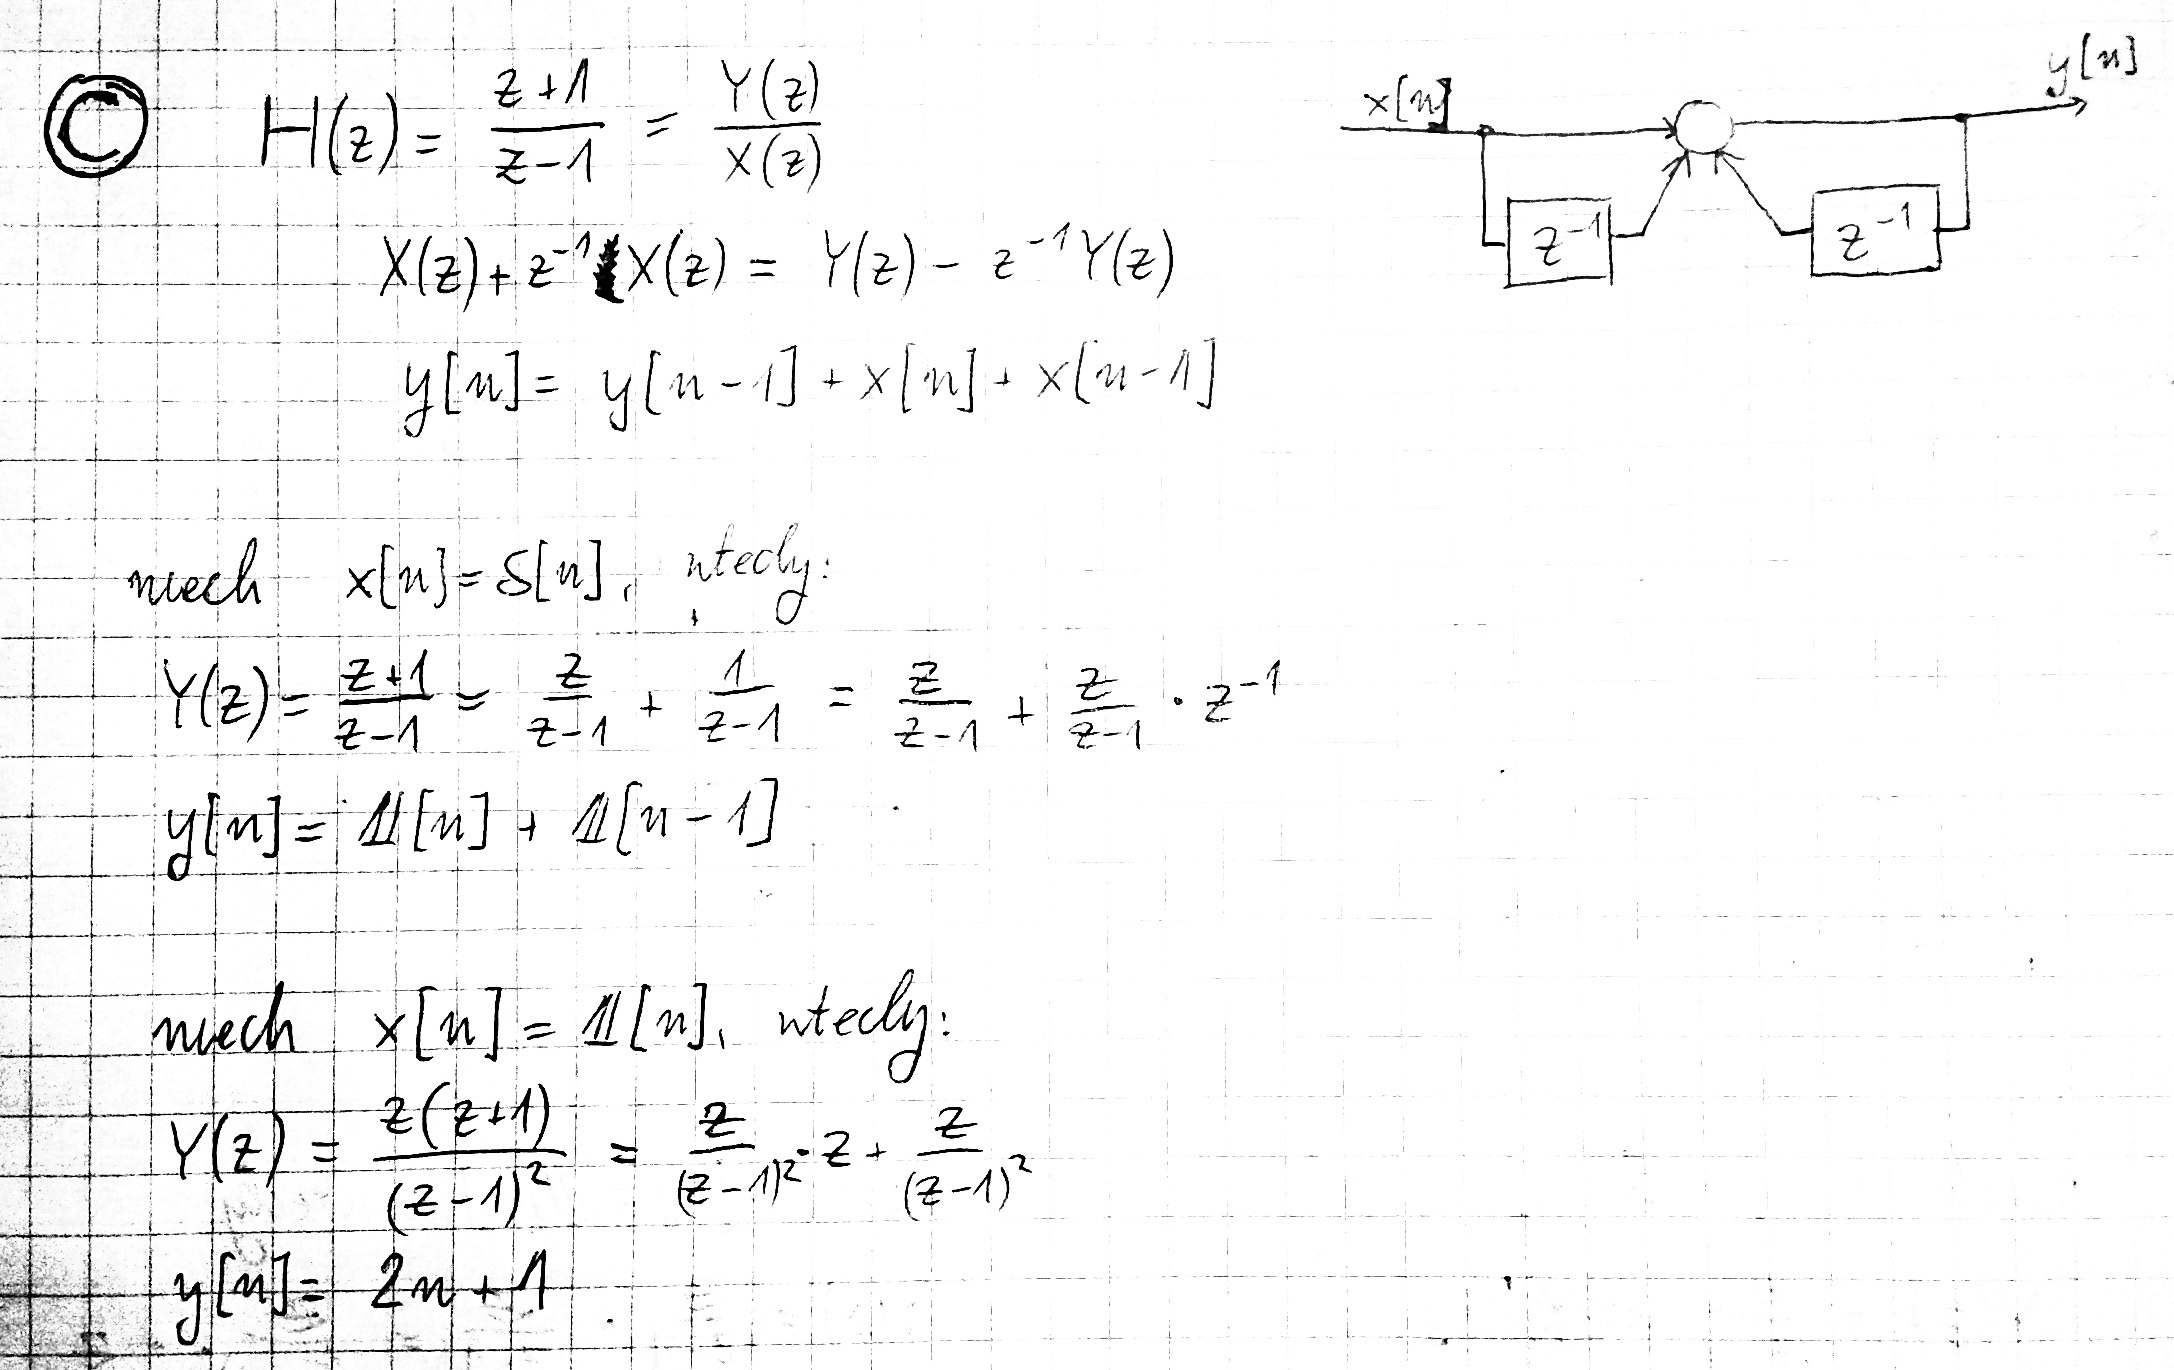 C H(z) = (z+1)/(z-1) = Y(z)/X(z)
x[n] y[n]
z⁻¹ z⁻¹
X(z) + z⁻¹ X(z) = Y(z) - z⁻¹ Y(z)
y[n] = y[n-1] + x[n] + x[n-1]
niech x[n] = δ[n], wtedy:
Y(z) = (z+1)/(z-1) = z/(z-1) + 1/(z-1) = z/(z-1) + z/(z-1) · z⁻¹
y[n] = 𝟙[n] + 𝟙[n-1]
niech x[n] = 𝟙[n], wtedy:
Y(z) = z(z+1)/(z-1)² = z/(z-1)² · z + z/(z-1)²
y[n] = 2n + 1